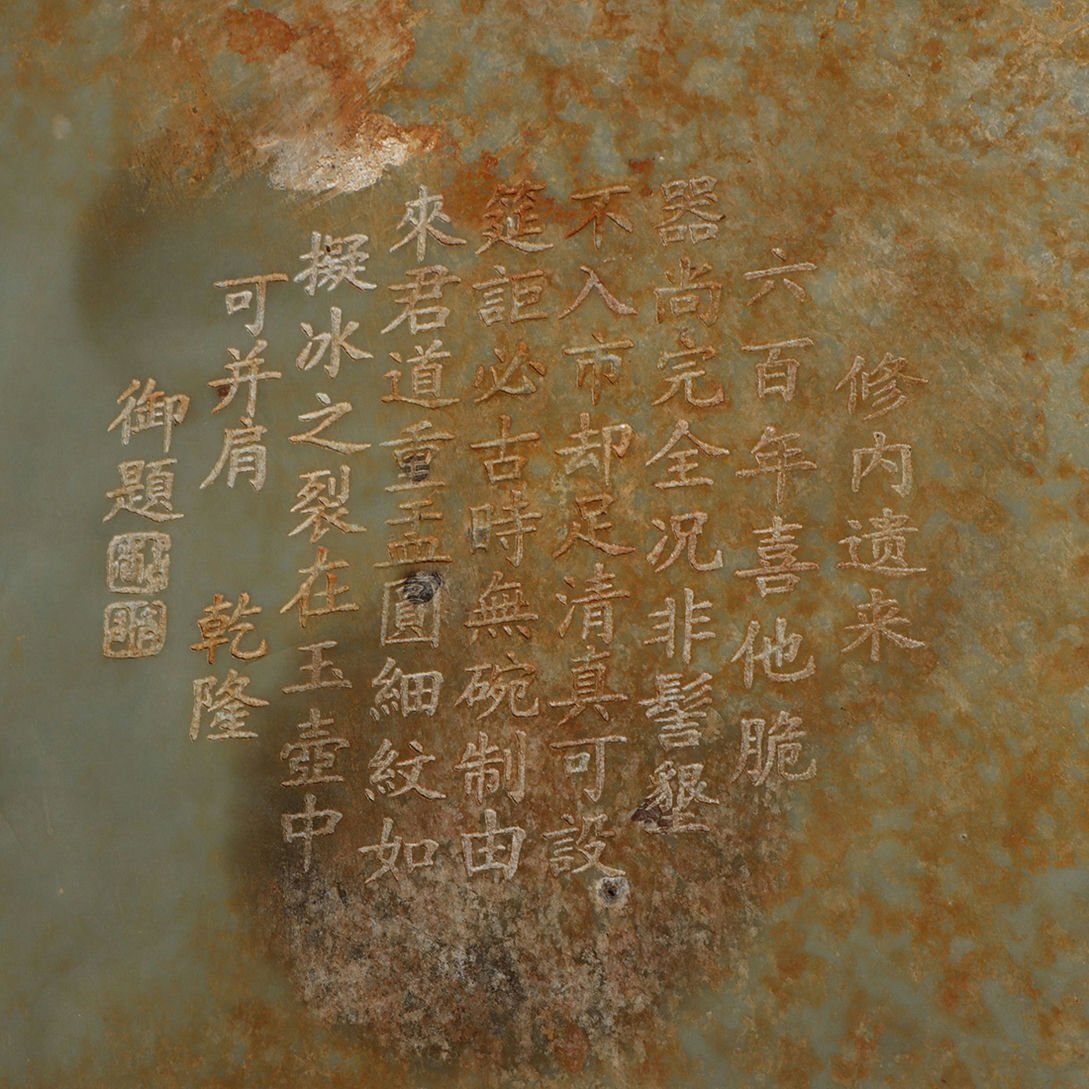 修内遗来
六百年喜他脆
器尚完全况非髻墾
不入市却足清真可設
筵詎必古時無碗制由
來君道重盂圓細紋如
擬冰之裂在玉壺中
可并肩 乾隆
御題